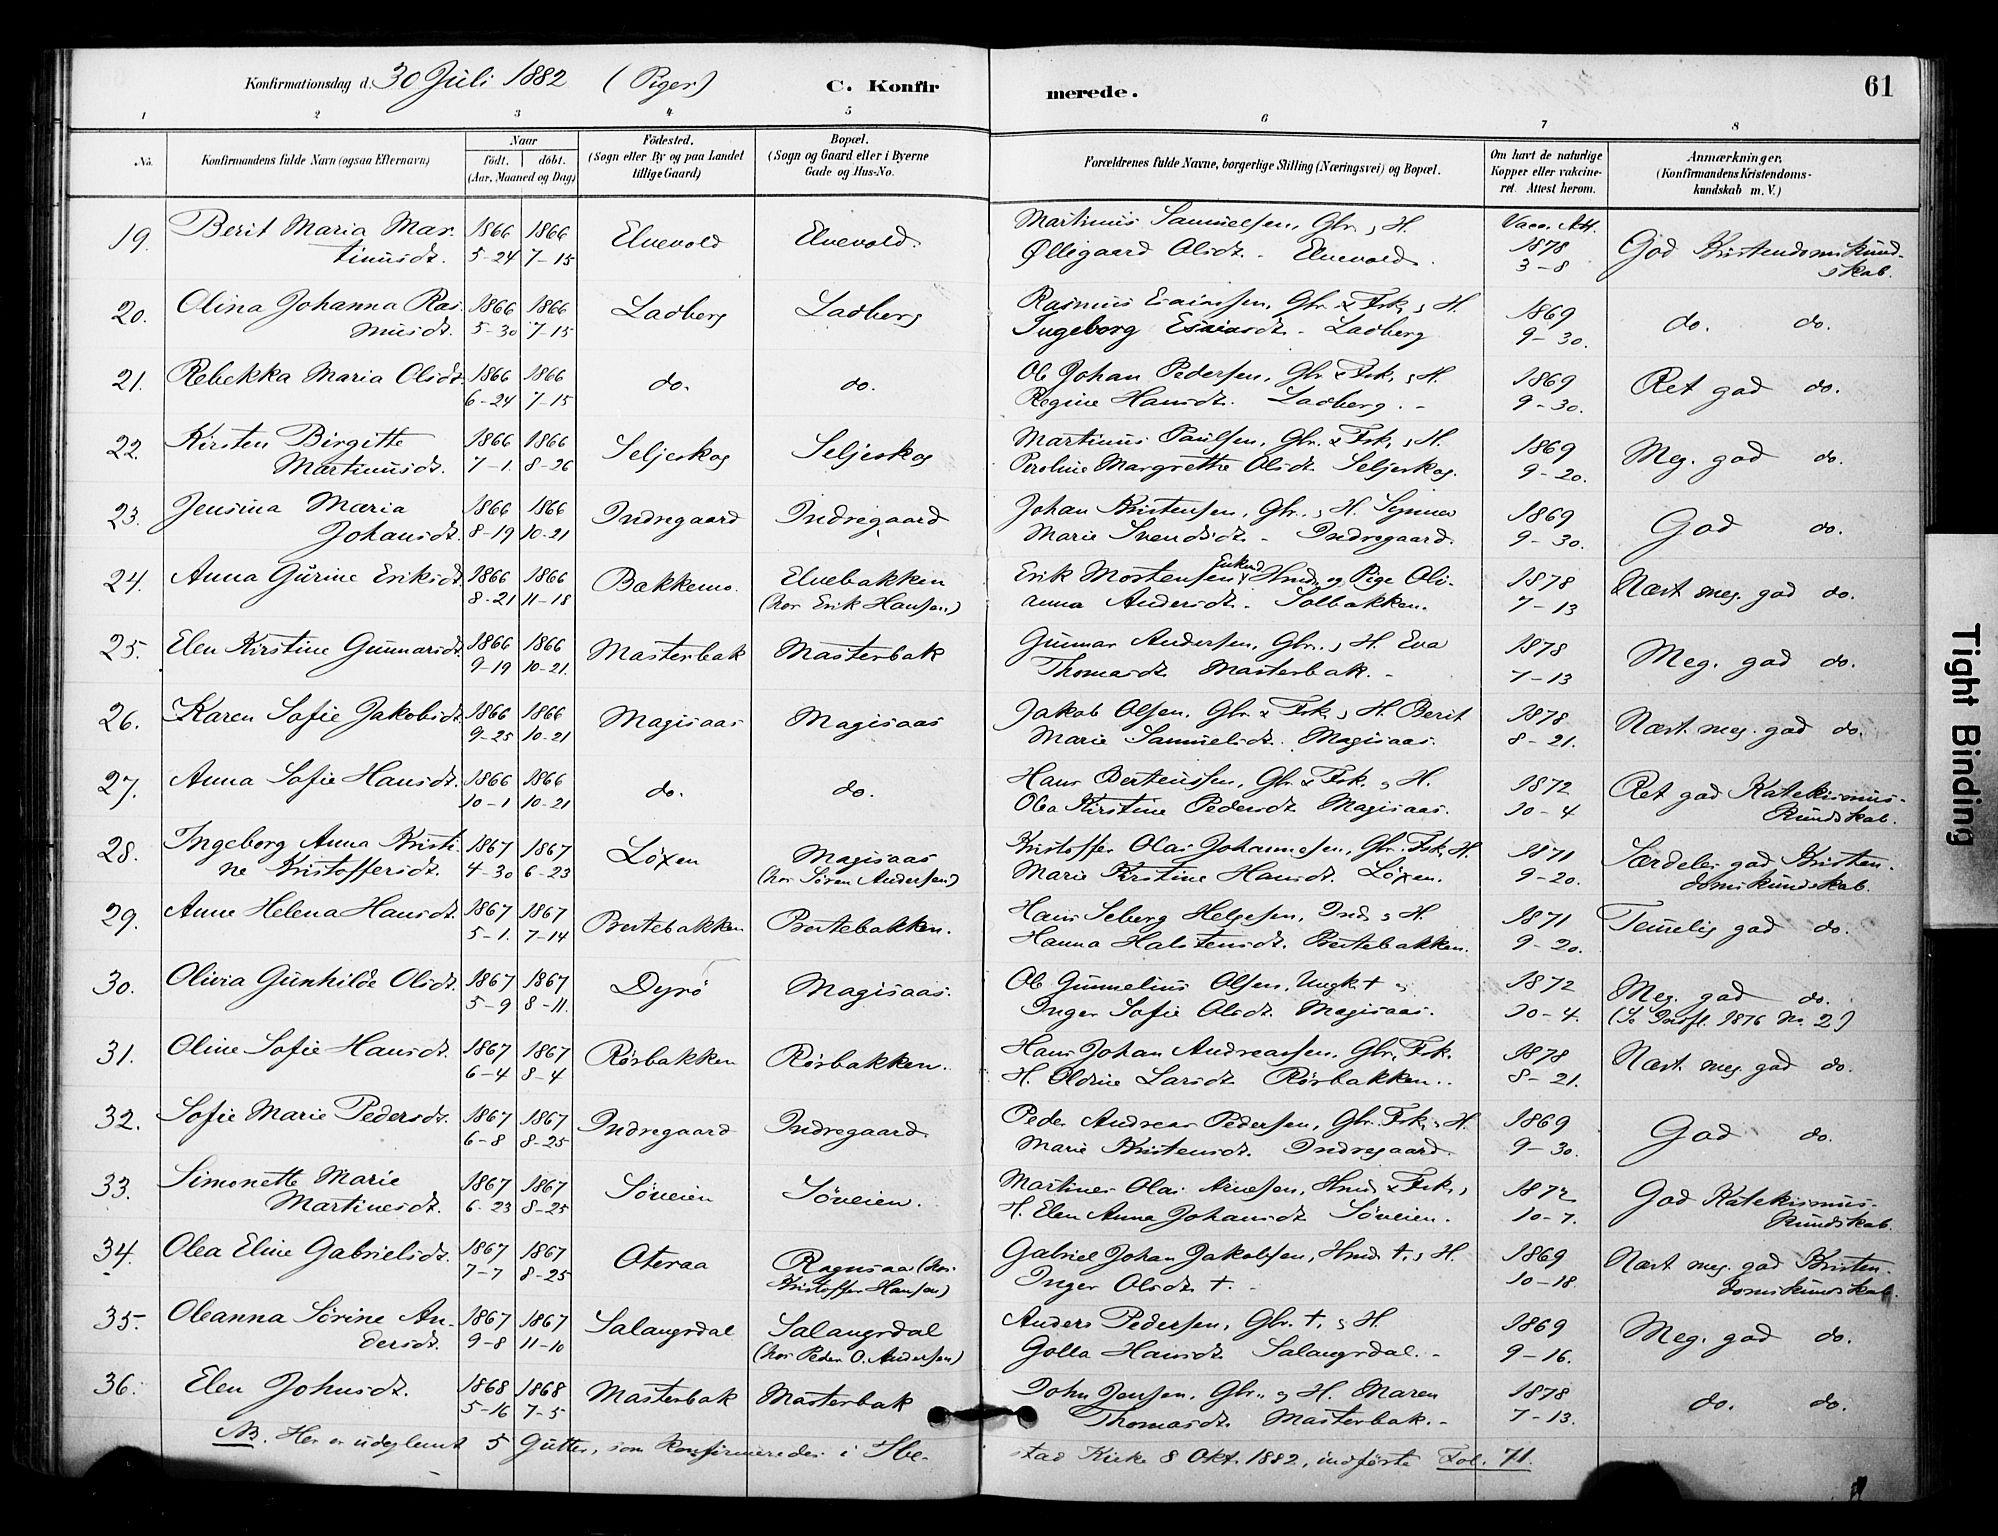 Konfirmationsdag d. 30 Juli 1882 (Piger) C. Konfirmerede. 61
1 2 3 4 5 6 7 8
No. Konfirmandens fulde Navn (ogsaa Efternavn) Naar födt. döbt. (Aar, Maaned og Dag) Födested. (Sogn eller By og paa Landet tillige Gaard) Bopæl. (Sogn og Gaard eller i Byerne Gade og Hus-No. Forældrenes fulde Navne, borgerlige Stilling (Næringsvei) og Bopæl. Om havt de naturlige Kopper eller vakcineret. Attest herom. Anmærkninger. (Konfirmandens Kristendomskundskab m. V.)
19. Berit Maria Mar- 1866 1866 Elvevold Elvevold. Martinus Samuelsen, Gbr. & H. Vacc. Att. 1878 God Kristendomskund-
tinusdt. 5-24 7-15 Øllegaard Olsdt. Elvevold. 3-8 skab.
20. Olina Johanna Ras- 1866 1866 Ladberg Ladberg Rasmus Esaiassen, Gbr. & Fsk. & H. 1869 do. do.
musdt. 5-30 7-15 Ingeborg Esaiasdt. Ladberg 9-30.
21. Rebekka Maria Olsdt. 1866 1866 do. do. Ole Johan Pedersen, Gbr. & Fsk. & H. 1869 Ret god do.
6-24 7-15 Regine Hansdt. Ladberg. 9-30.
22. Kirsten Birgitte 1866 1866 Seljeskog Seljeskog Martinus Paulsen, Gbr. & Fsk. & H. 1869 Meg. god do.
Martinusdt. 7-1. 8-26 Peroline Margrethe Olsdt. Seljeskog. 9-20.
23. Jensina Maria 1866 1866 Indregaard Indregaard Johan Kristensen, Gbr. & H. Synnva 1869 God do.
Johansdt. 8-19 10-21 Marie Svendsdt. Indregaard. 9-30.
24. Anna Gurine Eriksdt. 1866 1866 Bakkemo. Elvebakken Erik Mortensen, Enkmd. Hmd. og Pige Oli- 1878 Næst. meg. god do.
8-21 11-18 (hos Erik Hansen) anna Andersdt. Solbakken. 7-13
25. Elen Kirstine Gunnarsdt. 1866 1866 Masterbak Masterbak Gunnar Andersen, Gbr. & H. Eva 1878 Meg. god do.
9-19 10-21. Thomasdt. Masterbak. 7-13
26. Karen Sofie Jakobsdt. 1866 1866 Magisaas Magisaas Jakob Olsen, Gbr. & Fsk. & H. Berit 1878 Næst. meg. god do.
9-25 10-21 Marie Samuelsdt. Magisaas. 8-21.
27. Anna Sofie Hansdt. 1866 1866 do. do. Hans Berteussen, Gbr. & Fsk. & H. 1872 Ret god Katekismus-
10-1 10-21 Olea Kirstine Pedersdt. Magisaas. 10-4 kundskab.
28. Ingeborg Anna Kristi- 1867 1867 Løxen Magisaas Kristoffer Olai Johannesen, Gbr. Fsk. H. 1871 Særdeles god Kristen-
ne Kristoffersdt. 4-30 6-23 (hos Søren Andersen) Marie Kirstine Hansdt. Løxen. 9-20. domskundskab.
29. Anne Helena Hansdt. 1867 1867 Bertebakken Bertebakken. Hans Seberg Helgesen, Ind. & H. 1871 Temelig god do.
5-1. 7-14 Hanna Halstensdt. Bertebakken. 9-20.
30. Olivia Gunhilde Olsdt. 1867 1867 Dyrø Magisaas. Ole Gunnelius Olsen, Ungk. † & 1872 Meg. god do.
5-9 8-11. Inger Sofie Olsdt. Magisaas. 10-4. (Se Indfl. 1876 No. 2)
31. Oline Sofie Hansdt. 1867 1867 Rørbakken Rørbakken. Hans Johan Andreassen, Gbr. Fsk. 1878 Næst. meg. god do.
6-4 8-4 H. Oldine Larsdt. Rørbakken. 8-21.
32. Sofie Marie Pedersdt. 1867 1867 Indregaard Indregaard. Peder Andreas Pedersen, Gbr. Fsk. & H. 1869 God do.
6-8 8-25 Marie Kristensdt. Indregaard. 9-30.
33. Simonette Marie 1867 1867 Søveien Søveien. Martines Olai Arnesen, Hmd. & Fsk. & 1872 God Katekismus-
Martinesdt. 6-23 8-25 H. Elen Anna Johansdt. Søveien. 10-7. kundskab.
34. Olea Eline Gabrielsdt. 1867 1867 Oteraa Rognsaa (hos Gabriel Johan Jakobsen, Hmd. †, & H. 1869 Næst. meg. god Kristen-
7-7 8-25 Kristoffer Hansen) Inger Olsdt. †. 10-18. domskundskab.
35. Oleanna Sørine An- 1867 1867 Salangsdal Salangsdal Anders Pedersen, Gbr. †, & H. 1869 Meg. god do.
dersdt. 9-8 11-10 (hos Peder O. Andersen) Golla Hansdt. Salangsdal. 9-16.
36. Elen Johnsdt. 1868 1868 Masterbak Masterbak John Jensen, Gbr. & H. Maren 1878 do. do.
5-16 7-5 Thomasdt. Masterbak. 7-13.
NB. Her er udeglemt 5 Gutter, som konfirmeredes i Ibe- stad Kirke 8 Okt. 1882, indførte Fol. 71.
Tight Binding